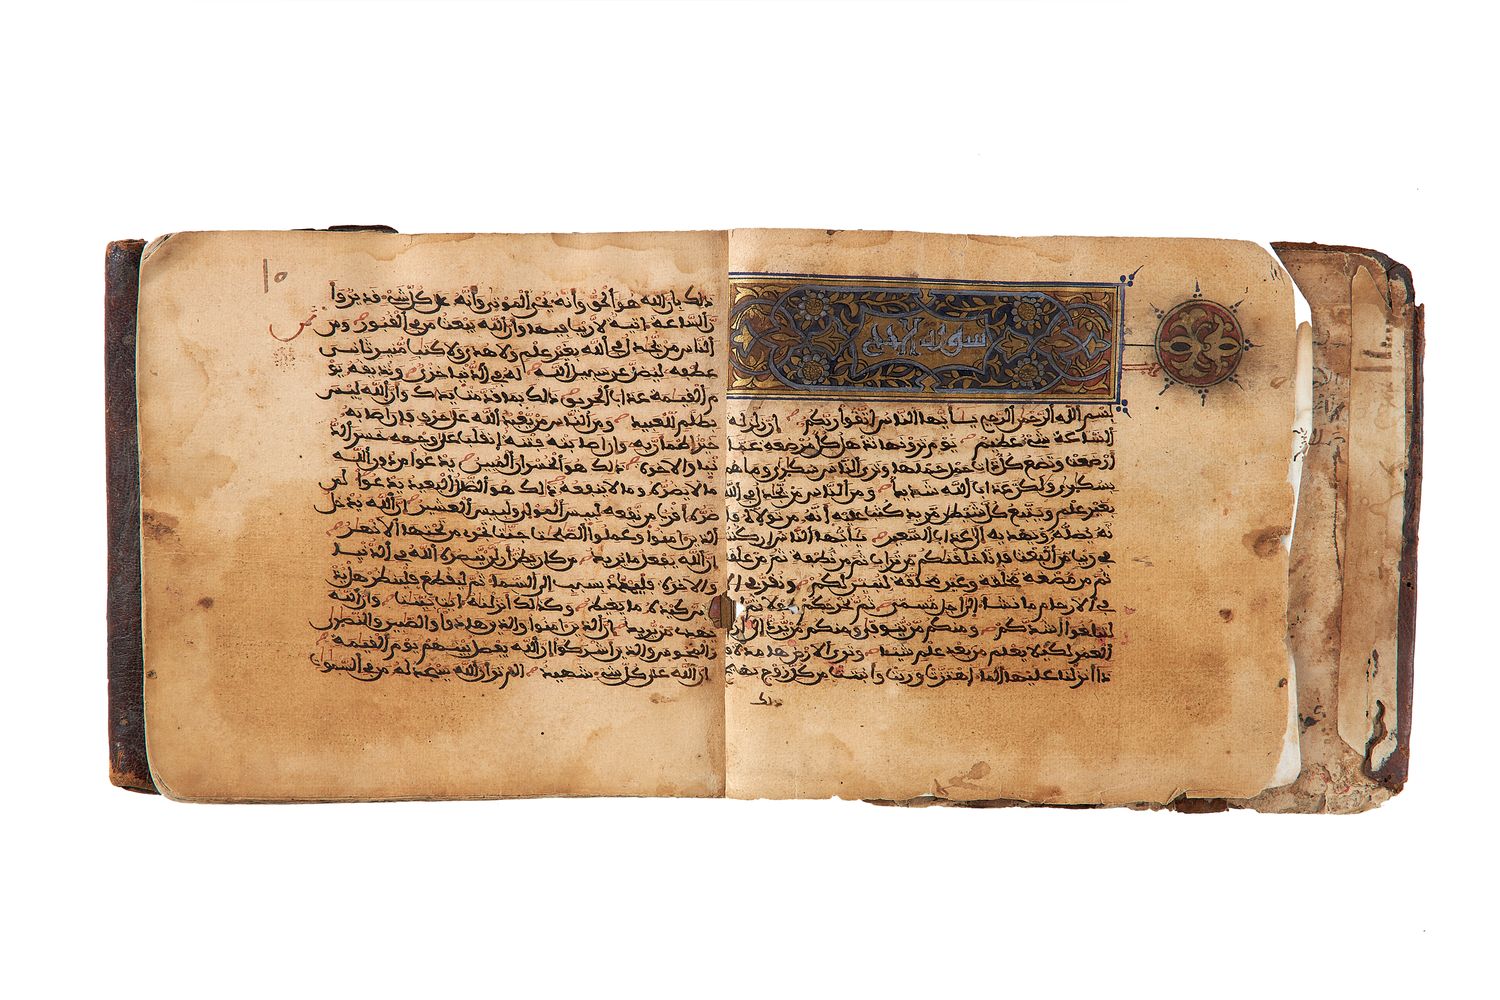 سورة الحج
بسم الله الرحمن الرحيم يأيها الناس اتقوا ربكم إن زلزلة
الساعة شيء عظيم يوم ترونها تذهل كل مرضعة عما
أرضعت وتضع كل ذات حمل حملها وترى الناس سكرى وما هم
بسكرى ولكن عذاب الله شديد ومن الناس من يجدل في الله
بغير علم ويتبع كل شيطن مريد كتب عليه أنه من تولاه فأ
نه يضله ويهديه إلى عذاب السعير يأيها الناس إن كنتم
في ريب من البعث فإنا خلقنكم من تراب ثم من نطفة ثم من علقة
ثم من مضغة مخلقة وغير مخلقة لنبين لكم ونقر في ا
لأرحام ما نشاء إلى أجل مسمى ثم نخرجكم طفلا ثم
لتبلغوا أشدكم ومنكم من يتوفى ومنكم من يرد إلى أرذل
العمر لكيلا يعلم من بعد علم شيئا وترى الأرض هامدة فإ
ذا أنزلنا عليها الماء اهتزت وربت وأنبتت من كل زوج بهيج
ذلك
ذلك بأن الله هو الحق وأنه يحي الموتى وأنه على كل شيء قدير وأ
ن الساعة اتية لا ريب فيها وأن الله يبعث من في القبور ومن
الناس من يجدل في الله بغير علم ولا هدى ولا كتب منير ثاني
عطفه ليضل عن سبيل الله له في الدنيا خزي ونذيقه يو
م القيمة عذاب الحريق ذلك بما قدمت يداك وأن الله ليس
بظلم للعبيد ومن الناس من يعبد الله على حرف فإن أصابه
خير اطمأن به وإن أصابته فتنة انقلب على وجهه خسر الد
نيا والاخرة ذلك هو الخسران المبين يدعوا من دون الله
ما لا يضره وما لا ينفعه ذلك هو الضلل البعيد يدعوا لمن
ضره أقرب من نفعه لبيس المولى ولبيس العشير إن الله يدخل
الذين امنوا وعملوا الصلحت جنت تجري من تحتها الأنهر
إن الله يفعل ما يريد من كان يظن أن لن ينصره الله في الدنيا
والاخرة فليمدد بسبب إلى السماء ثم ليقطع فلينظر هل يذ
هبن كيده ما يغيظ وكذلك أنزلنه ايت بينت وأن الله
يهدي من يريد إن الذين امنوا والذين هادوا والصبين والنصرى
والمجوس والذين أشركوا إن الله يفصل بينهم يوم القيمة
إن الله على كل شيء شهيد ألم تر أن الله يسجد له من في السموت